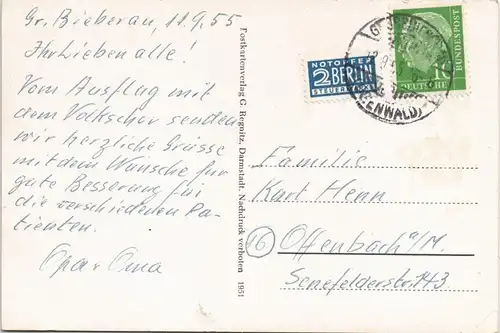 Gr. Bieberau, 11.9.55
Ihr Lieben alle!
Vom Ausflug mit
dem Volkschor senden
wir herzliche Grüsse
mit dem Wunsche für
gute Besserung für
die verschiedenen Pa-
tienten.
Opa + Oma
Postkartenverlag G. Regnitz, Darmstadt. Nachdruck verboten 1951
NOTOPFER
2 BERLIN
STEUERMARKE
DEUTSCHE
BUNDESPOST
10
(ODENWALD)
Familie
Karl Henn
(16) Offenbach a/M.
Senefelderstr. 143